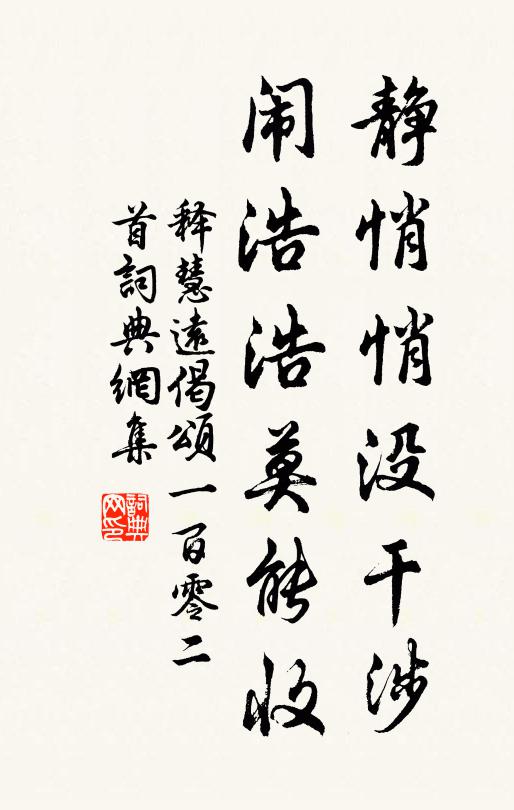 静悄悄没干涉
闹浩浩莫能收
释慧遠偈頌一百零二
首詞典網集
詞典
网印